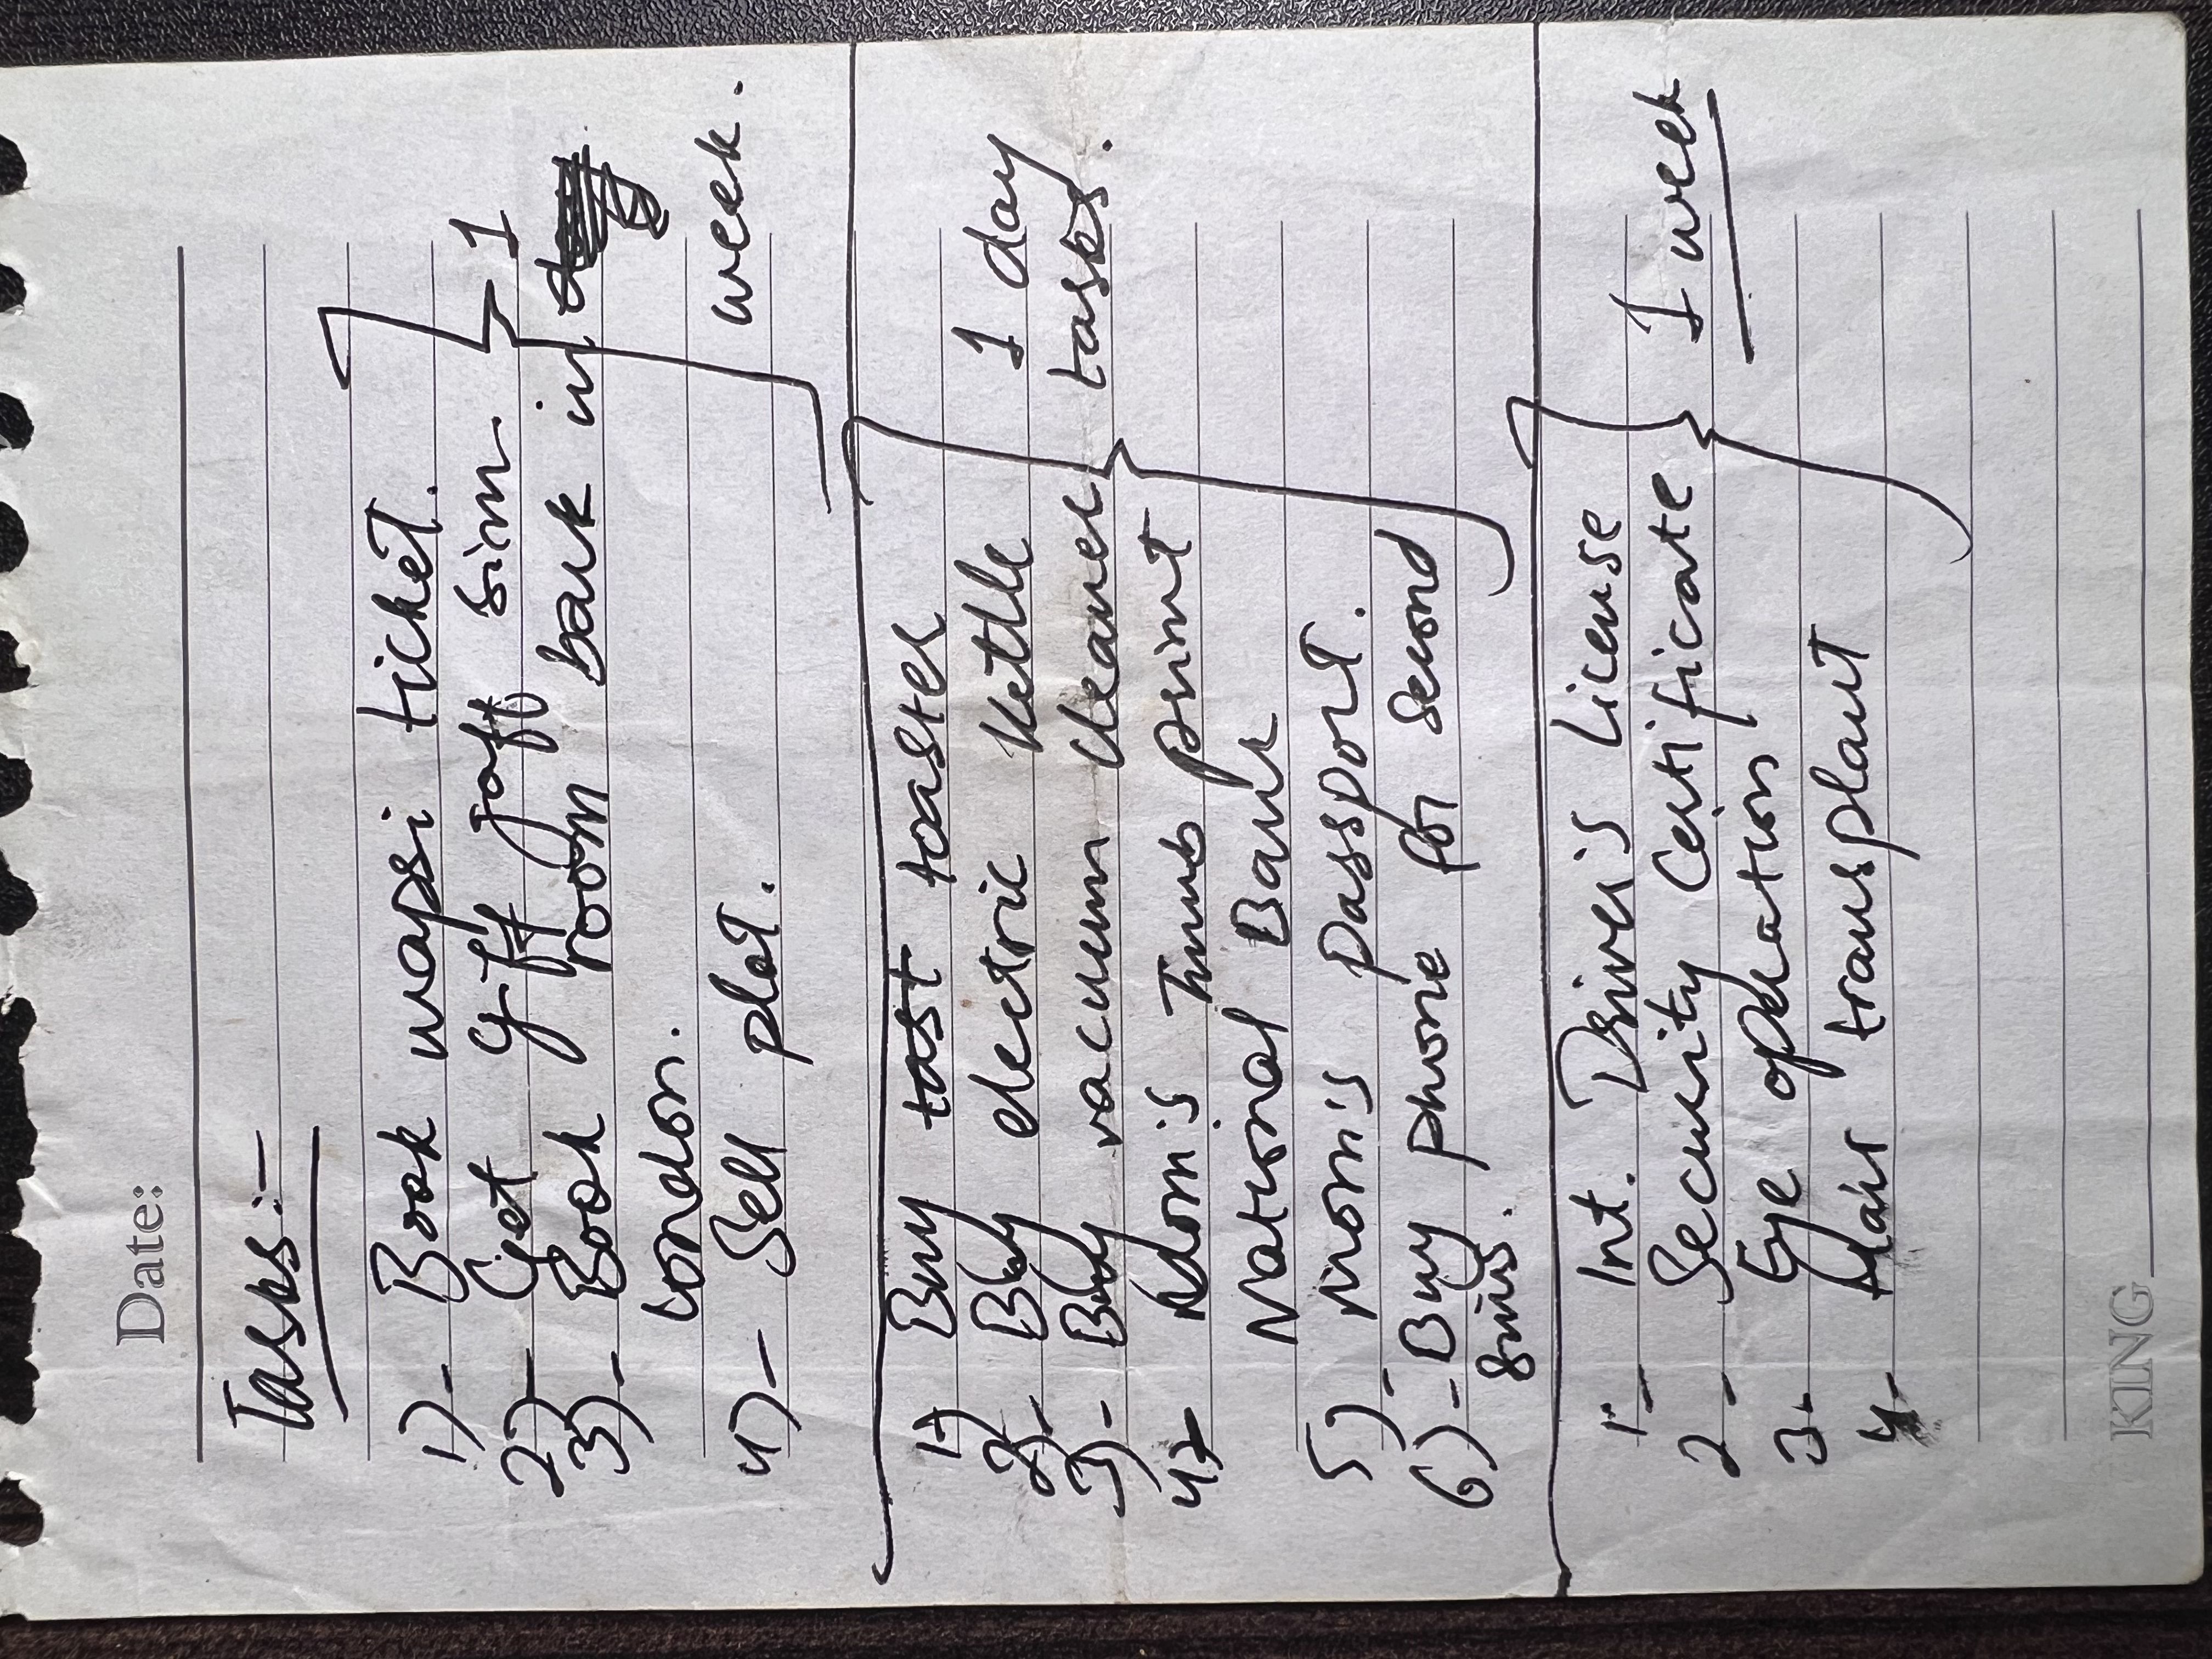 Date:
Tasks:-
1)- Book wapsi ticket.
2)- Get giff gaff sim. 1
3)- Book room back in
London.
4)- Sell plot. week.
1) Buy tast toaster
2)- Buy electric kettle 1 day
3)- Buy vacuum cleaner tasks.
4) Adon's Thumb print
National Bank
5)- Mom's passport.
6)- Buy phone for second
sims.
1- Int. Driver's License
2- Security Certificate 1 week
3- Eye opration
4- Hair transplant
KING